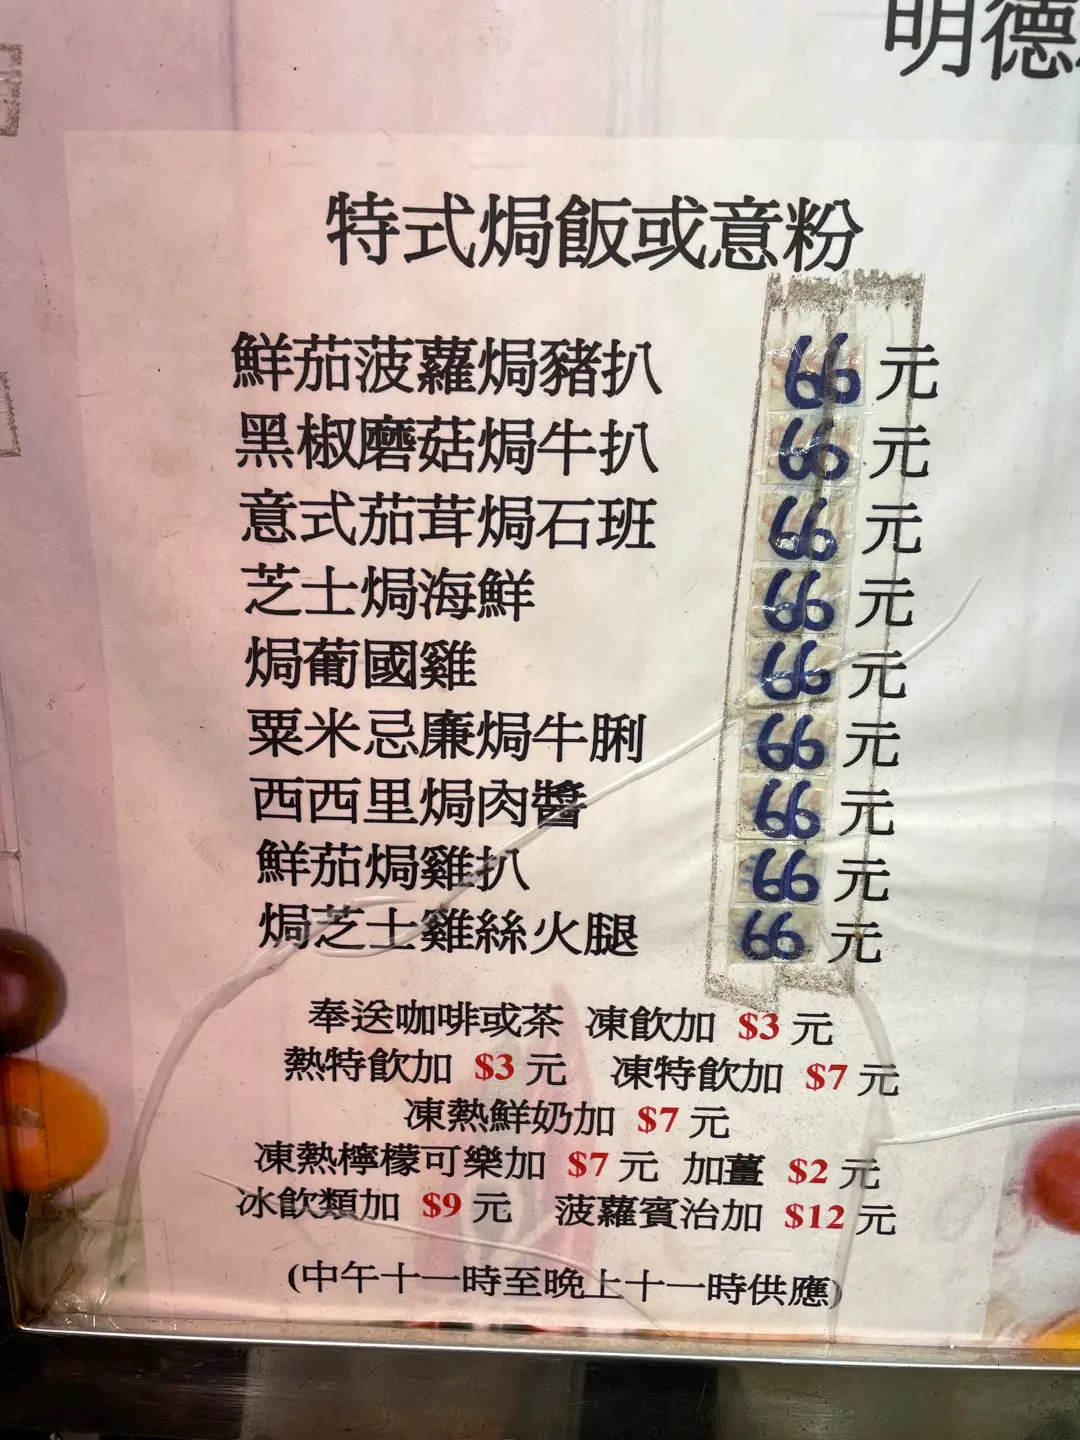 明德
特式焗飯或意粉
鮮茄菠蘿焗豬扒 66 元
黑椒磨菇焗牛扒 66 元
意式茄茸焗石班 66 元
芝士焗海鮮 66 元
焗葡國雞 66 元
粟米忌廉焗牛脷 66 元
西西里焗肉醬 66 元
鮮茄焗雞扒 66 元
焗芝士雞絲火腿 66 元
奉送咖啡或茶 凍飲加 $3 元
熱特飲加 $3 元 凍特飲加 $7 元
凍熱鮮奶加 $7 元
凍熱檸檬可樂加 $7 元 加薑 $2 元
冰飲類加 $9 元 菠蘿賓治加 $12 元
(中午十一時至晚上十一時供應)